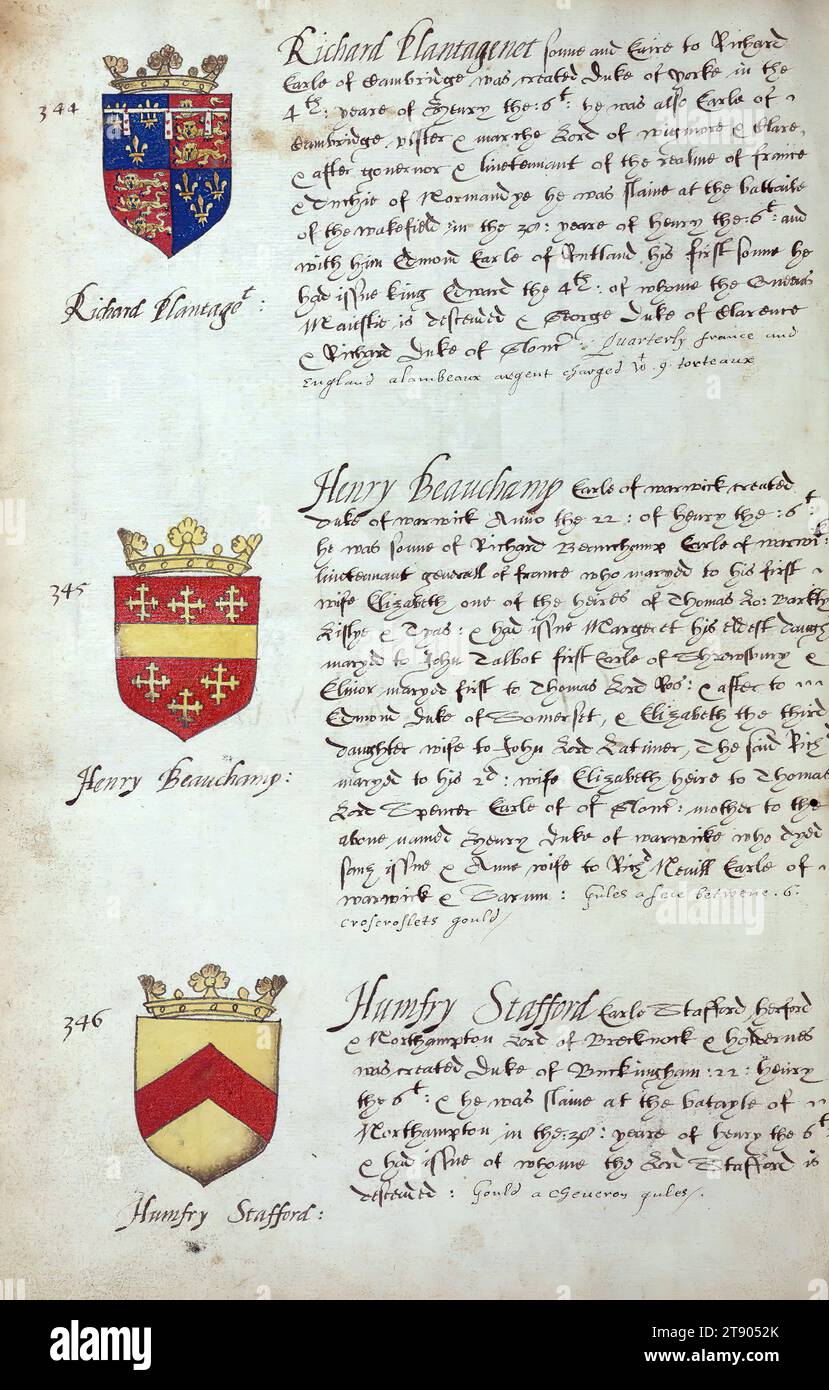 344
Richard Plantagenet sonne and haire to Richard
Earle of Cambridge was created Duke of Yorke in the
4th: yeare of Henry the: 6t: he was also Earle of
Cambridge, vlster & marche Lord of wigmore & Clare,
& after governor & lieutennant of the realme of france
& Duchie of Normandye he was slaine at the battaile
of the wakefield in the 38: yeare of henry the: 6t: and
with him Edmond Earle of Rutland his first sonne he
had issue king Edward the 4th: of whome the Queens
Maiestie is descended & George Duke of Clarence
& Richard Duke of Glonc: Quarterly france and
England a lambeaux argent charged wt 9 torteaux
Richard Plantagt:
345
Henry Beauchamp Earle of warwick created
Duke of warwick Anno the 22: of henry the: 6t
he was sonne of Richard Beauchamp Earle of warwi:
lieutennant generall of france who maryed to his first
wife Elizabeth one of the heires of Thomas Lo: Barkly
Lislye & Tyas: & had issue Margeret his eldest daugh
maryed to John Talbot first Earle of Shrewsbury &
Elinor maryed first to Thomas Lord Ros: & after to
Edmond Duke of Somerset, & Elizabeth the third
daughter wife to John Lord Latimer, The said Rich
maryed to his 2d: wife Elizabeth heire to Thomas
Lord Spencer Earle of of Glonc: mother to the
above named Henry Duke of warwicke who dyed
sanz issue & Anne wife to Rich Nevill Earle of
warwick & Sarum: Gules a fece betwene .6.
croscroslets gould
Henry Beauchamp:
346
Humfry Stafford Earle Stafford, herford
& Northampton Lord of Brecknock & holdernes
was created Duke of Buckingham: 22: henry
the 6t: & he was slaine at the batayle of
Northampton in the: 38: yeare of henry the 6t
& had issue of whome the Lord Stafford is
descended: Gould a cheveron gules.
Humfry Stafford:
alamy
alamy
Image ID: 2T9052K
www.alamy.com